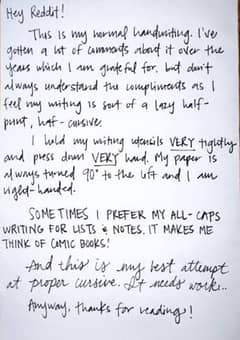 Hey Reddit!
This is my normal handwriting. I've
gotten a lot of comments about it over the
years which I am grateful for, but don't
always understand the compliments as I
feel my writing is sort of a lazy half-
print, half-cursive.
I hold my writing utensils VERY tightly
and press down VERY hard. My paper is
always turned 90° to the left and I am
right-handed.
SOMETIMES I PREFER MY ALL-CAPS
WRITING FOR LISTS & NOTES. IT MAKES ME
THINK OF COMIC BOOKS!
And this is my best attempt
at proper cursive. It needs work..
Anyway, thanks for reading!